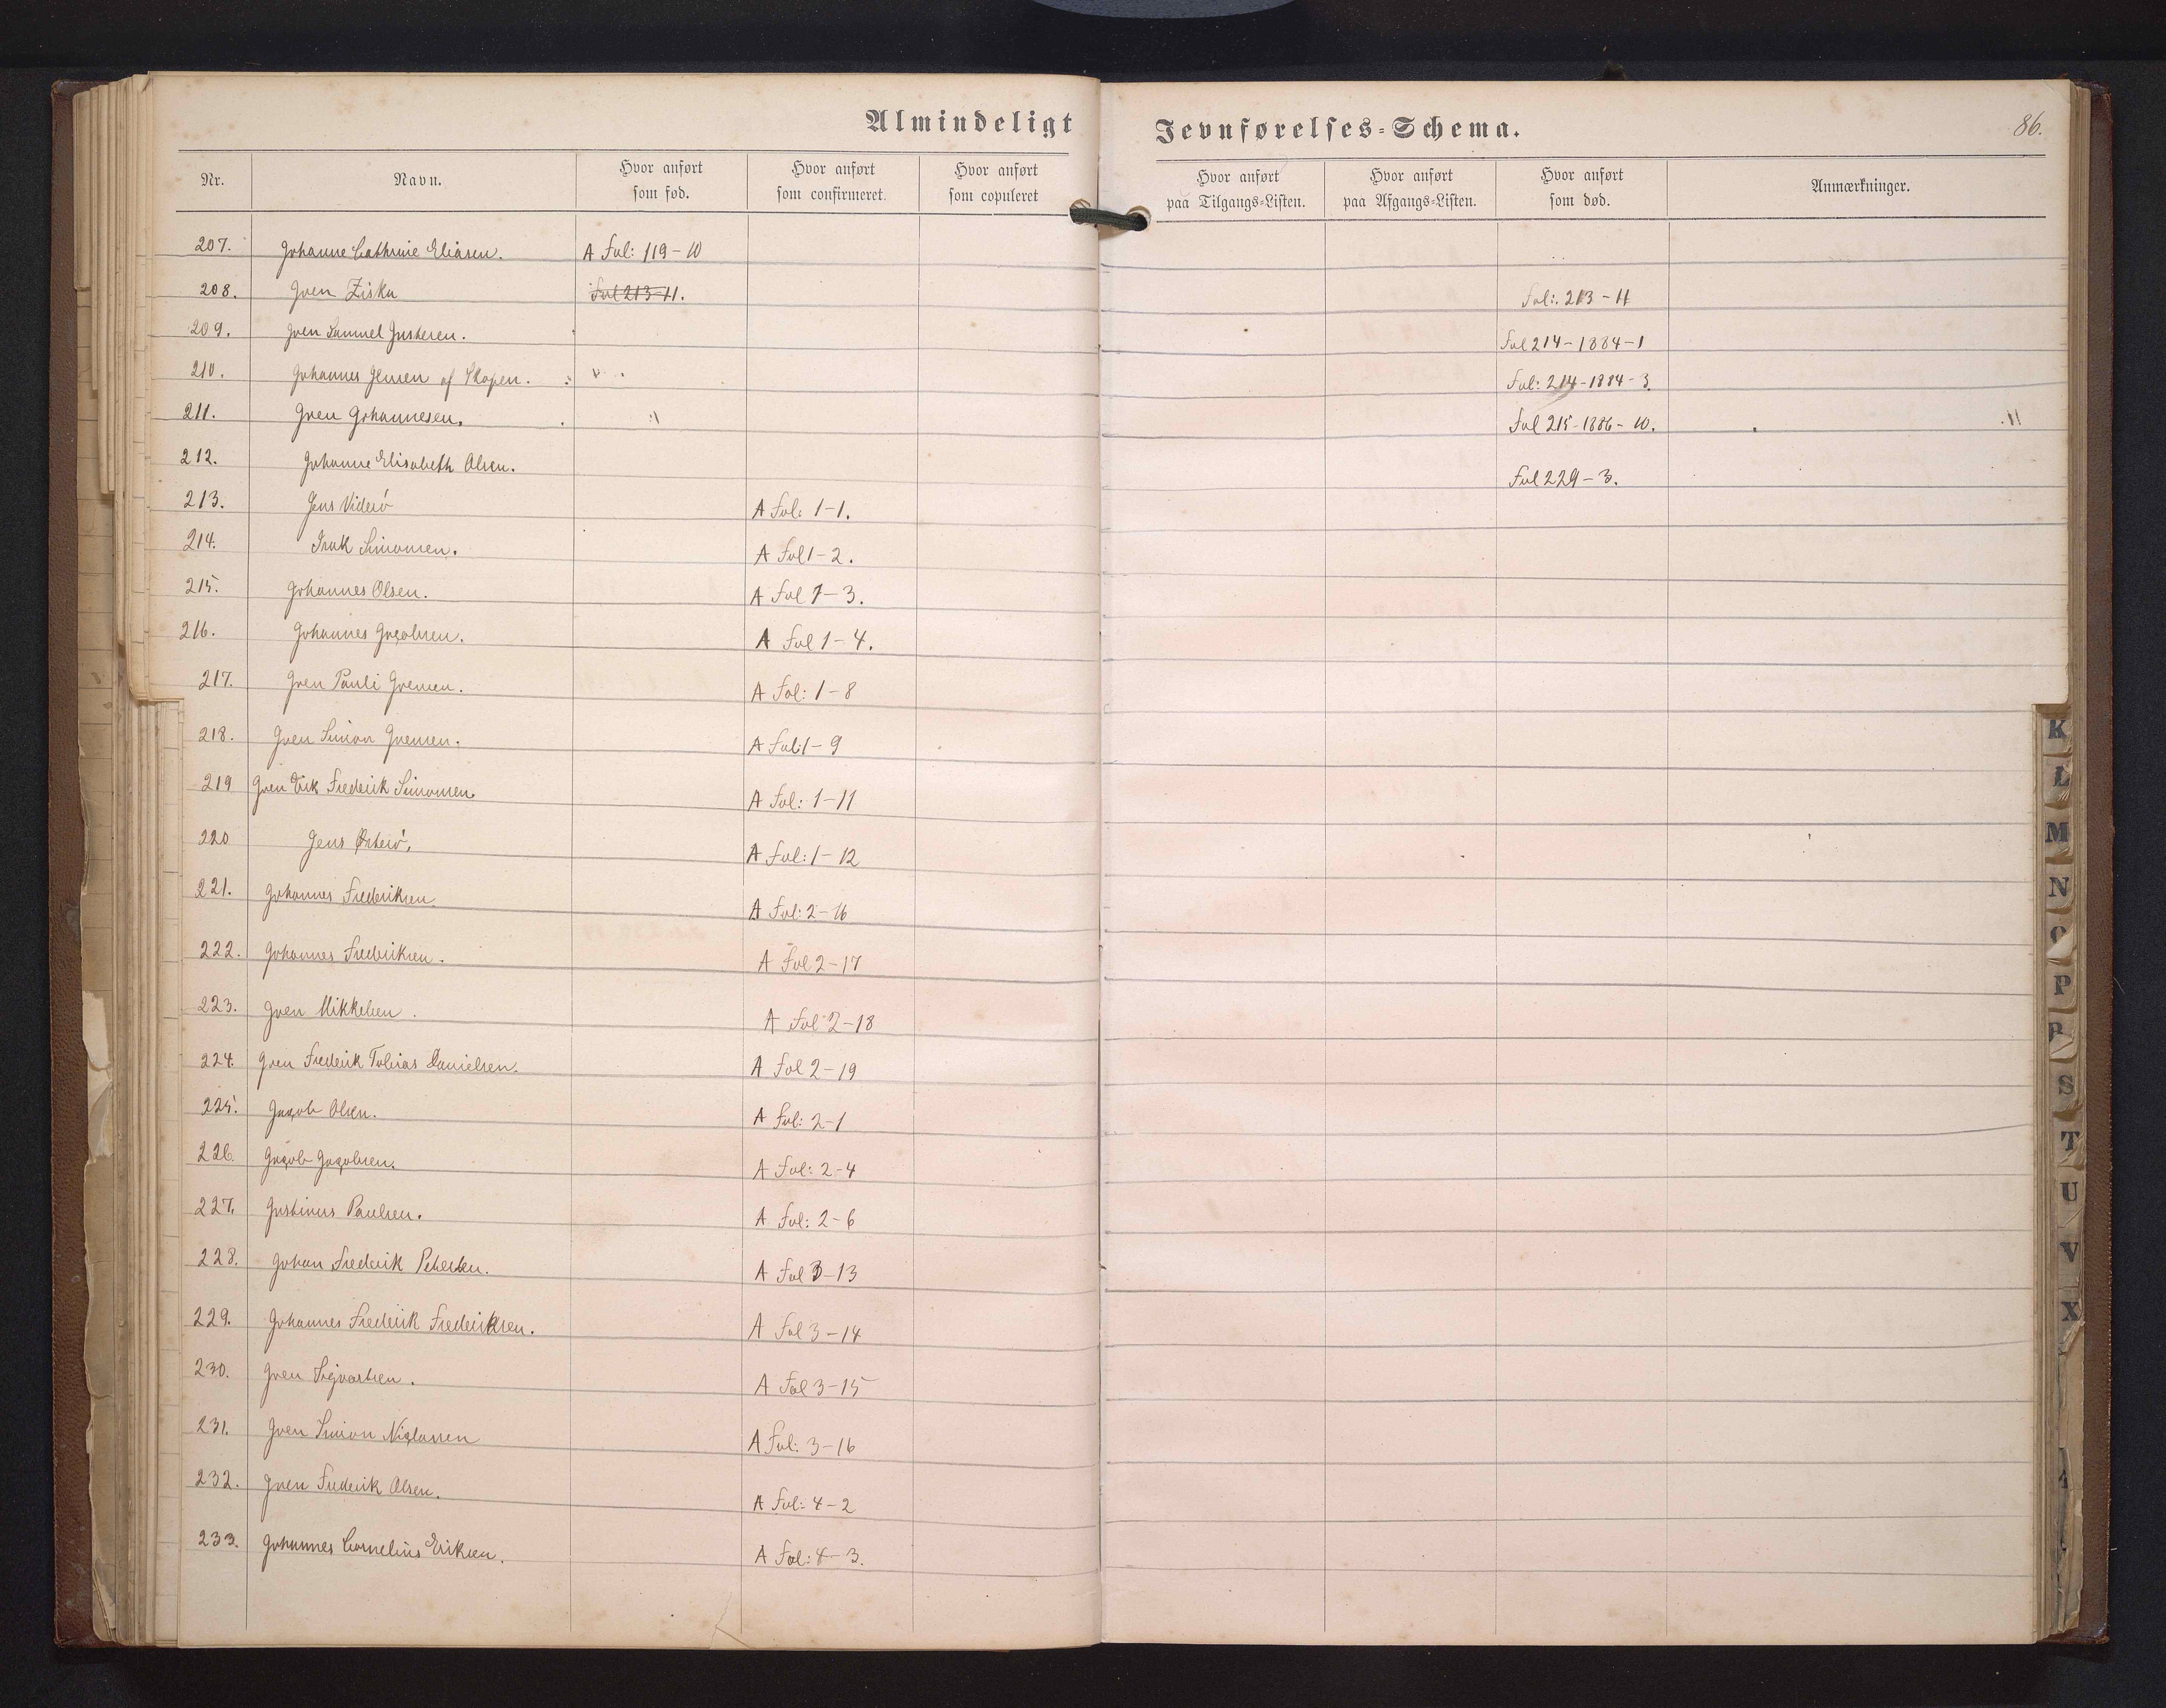 Almindeligt Jevnførelses-Schema. 86.
Nr. Navn. Hvor anført som fød. Hvor anført som confirmeret. Hvor anført som copuleret Hvor anført paa Tilgangs-Listen. Hvor anført paa Afgangs-Listen. Hvor anført som død. Anmærkninger.
207. Johanne Cathrine Eliasen. A Fol: 119-10
208. Joen Ziska Fol 213-11. Fol: 213-11
209. Joen Samuel Justesen. Fol 214-1884-1
210. Johannes Jensen af Skopen. Fol: 214-1884-3.
211. Joen Johannesen. Fol 215-1886-10.
212. Johanne Elisabeth Olsen. Fol 229-3.
213. Jens Viderö A Fol: 1-1.
214. Isak Simonsen. A Fol 1-2.
215. Johannes Olsen. A Fol 1-3.
216. Johannes Jacobsen. A Fol 1-4.
217. Joen Pauli Joensen. A Fol: 1-8
218. Joen Simon Joensen. A Fol: 1-9
219 Joen Erik Frederik Simonsen. A Fol: 1-11
220 Jens Österö. A Fol: 1-12
221. Johannes Frederiksen. A Fol: 2-16
222. Johannes Frederiksen. A Fol 2-17
223. Joen Mikkelsen. A Fol 2-18
224. Joen Frederik Tobias Danielsen. A Fol 2-19
225. Jacob Olsen. A Fol: 2-1
226. Jacob Jacobsen. A Fol: 2-4
227. Justinus Paulsen. A Fol: 2-6
228. Johan Frederik Petersen. A Fol 3-13
229. Johannes Frederik Frederiksen. A Fol 3-14
230. Joen Sigvartsen. A Fol 3-15
231. Joen Simon Niclassen A Fol: 3-16
232. Joen Frederik Olsen. A Fol: 4-2
233. Johannes Cornelius Eriksen. A Fol: 4-3.
K
L
M
N
O
P
R
S
T
U
V
X